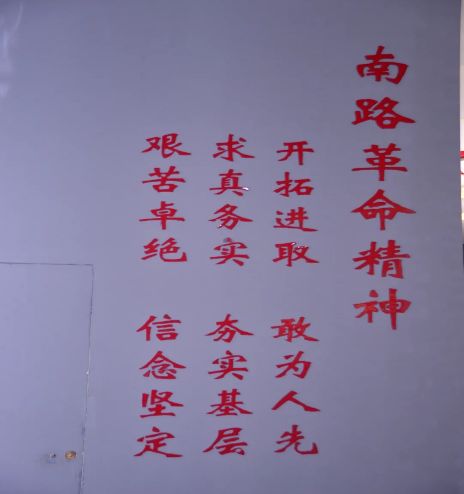 南路革命精神
开拓进取 敢为人先
求真务实 夯实基层
艰苦卓绝 信念坚定